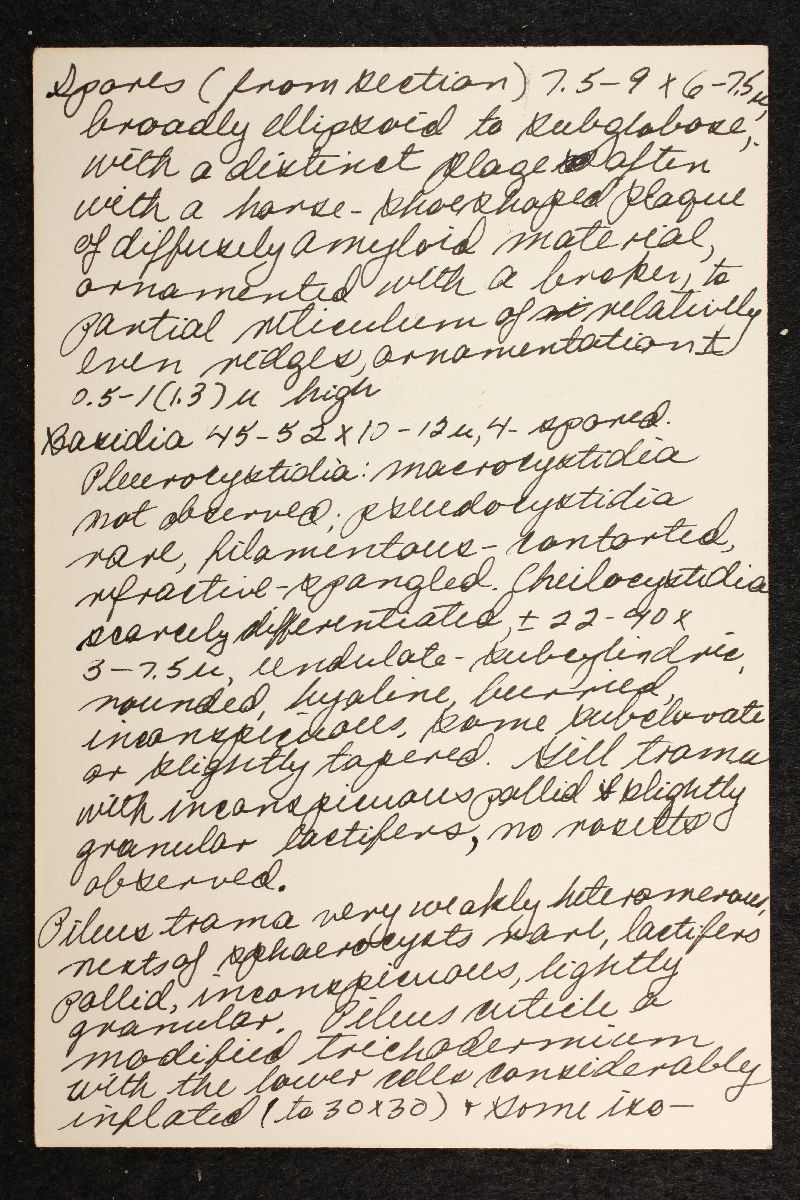 Spores (from section) 7.5-9 x 6-7.5 u,
broadly ellipsoid to subglobose,
with a distinct plage often
with a horse-shoe shaped plaque
of diffusely amyloid material,
ornamented with a broken to
partial reticulum of relatively
even ridges, ornamentation ±
0.5-1(1.3) u high
Basidia 45-52 x 10-12 u, 4-spored.
Pleurocystidia: macrocystidia
not observed; pseudocystidia
rare, filamentous-contorted,
refractive-spangled. Cheilocystidia
scarcely differentiated, ± 22-40 x
3-7.5 u, undulate-subcylindric,
rounded, hyaline, burried,
inconspicuous, some subclavate
or slightly tapered. Gill trama
with inconspicuous pallid & slightly
granular lactifers, no rosetts
observed.
Pileus trama very weakly heteromerous,
nests of sphaerocysts rare, lactifers
pallid, inconspicuous, lightly
granular. Pileus cuticle a
modified trichodermium
with the lower cells considerably
inflated (to 30x30) + some iso-